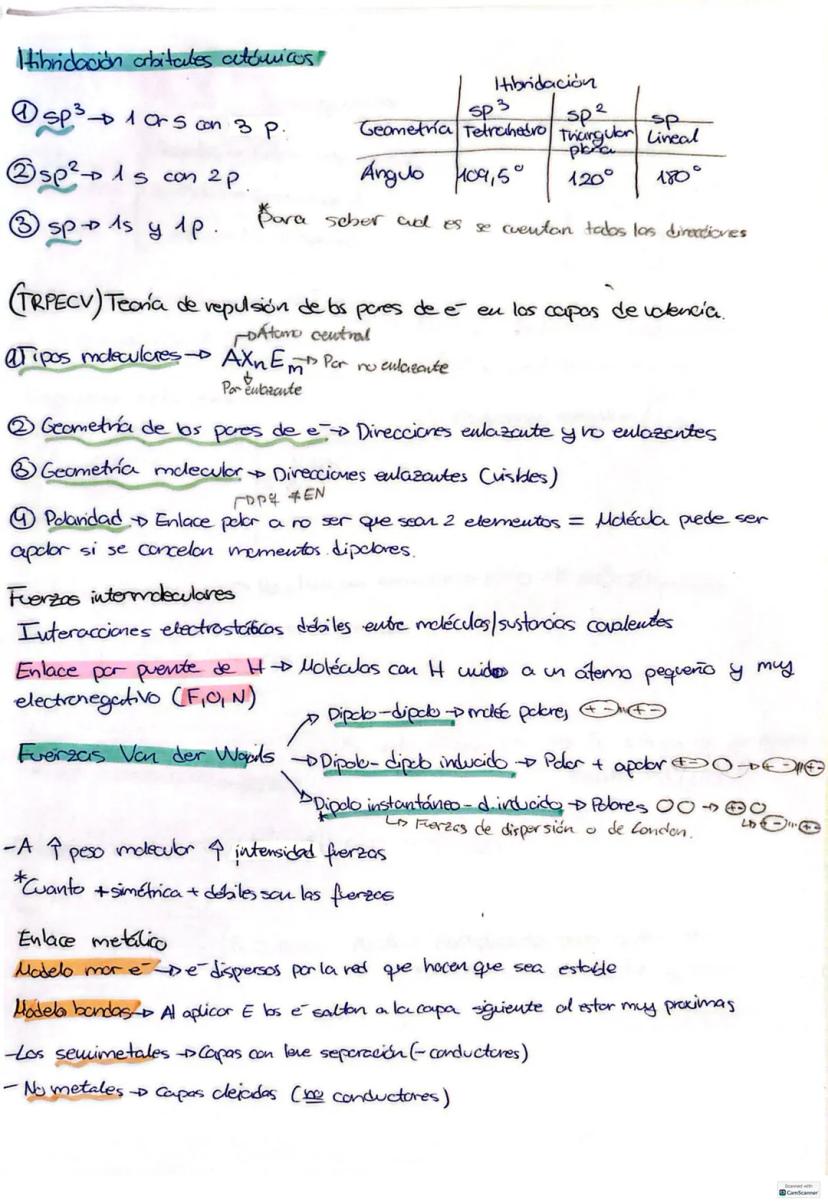 Hibridación orbitales atómicos
Hibridación
① sp³ → 1 Or s con 3 p.
sp³ sp² sp
Geometría Tetrahedro Triangular plana Lineal
② sp² → 1 s con 2 p
Ángulo 109,5° 120° 180°
③ sp → 1s y 1p.
*para saber cual es se cuentan todas las direcciones
(TRPECV) Teoría de repulsión de los pares de e⁻ en las capas de valencia.
→ Átomo central
① Tipos moleculares → AXnEm → Par no enlazante
Par enlazante
② Geometría de los pares de e⁻ → Direcciones enlazante y no enlazantes
③ Geometría molecular → Direcciones enlazantes (visibles)
≠ EN
④ Polaridad → Enlace polar a no ser que sean 2 elementos = Molécula puede ser
apolar si se cancelan momentos dipolares.
Fuerzas intermoleculares
Interacciones electrostáticas débiles entre moléculas/sustancias covalentes
Enlace por puente de H → Moléculas con H unido a un átomo pequeño y muy
electronegativo (F, O, N)
→ Dipolo-dipolo → moléc polares
Fuerzas Van der Waals → Dipolo-dipolo inducido → Polar + apolar
→ Dipolo instantáneo - d. inducido → Polares
*
↳ Fuerzas de dispersión o de London.
- A ↑ peso molecular ↑ intensidad fuerzas
*Cuanto + simétrica + débiles son las fuerzas
Enlace metálico
Modelo mar e⁻ → e⁻ dispersos por la red que hacen que sea estable
Modelo bandas → Al aplicar E los e⁻ saltan a la capa siguiente al estar muy proximas
- Los semimetales → Capas con leve separación (- conductores)
- No metales → Capas alejadas (no conductores)
Scanned with
CamScanner